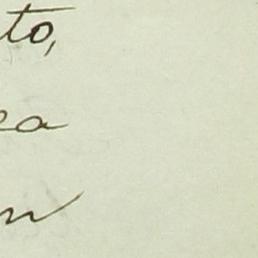 to,
ea
n